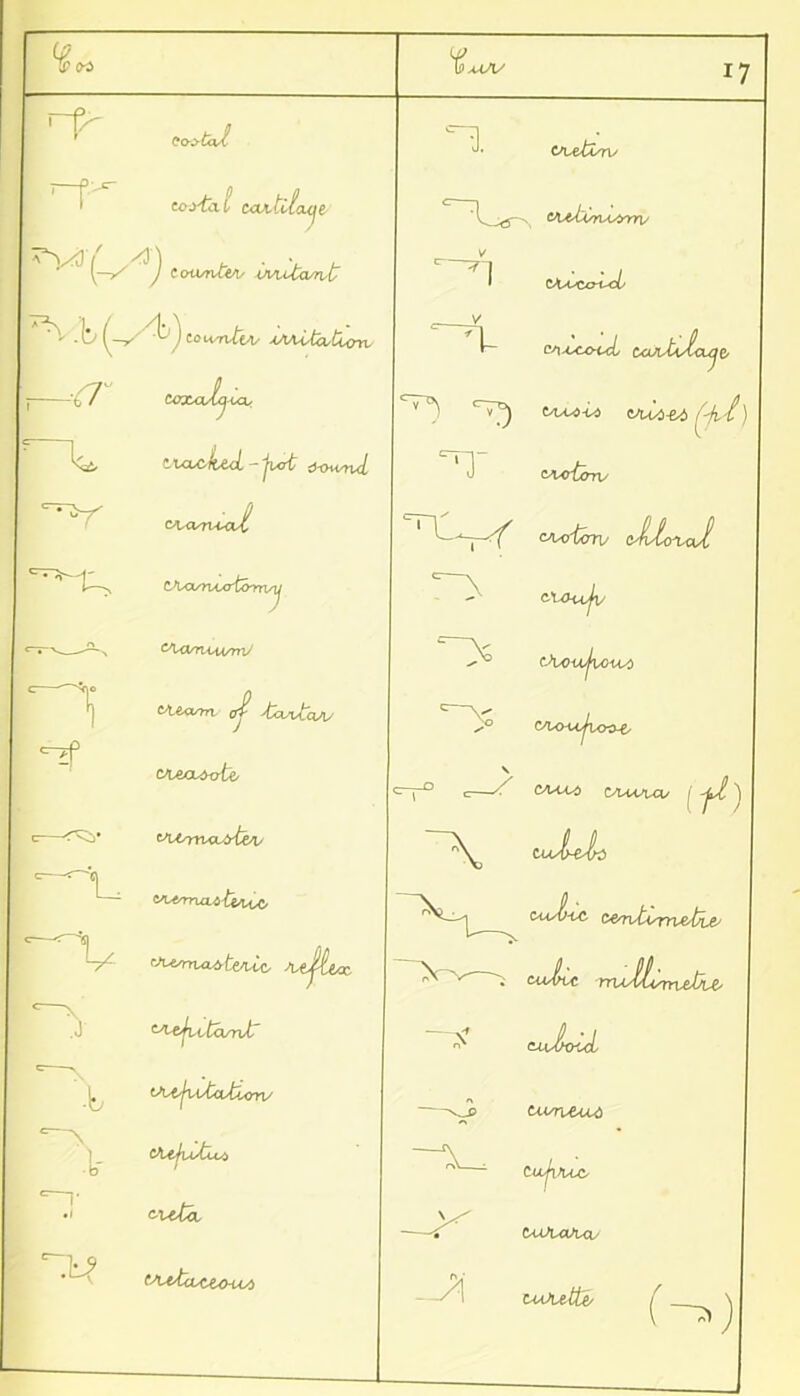 Cos
costal
costal cartilage
counter irritant
counter irritation
coxalgia
cracked-pot sound
cranial
craniotomy
cranium
cream of tartar
creasote
cremaster
cremasteric
cremasteric reflex
crepitant
crepitation
crepitus
creta
cretaceous
Cur 17
cretin
cretinism
cricoid
cricoid cartilage
crisis crises (pl)
croton
croton chloral
croup
croupous
croupose
crus crura (pl)
cubebs
cubic centimetre
cubic millimetre
cuboid
cuneus
cupric
curara
curette